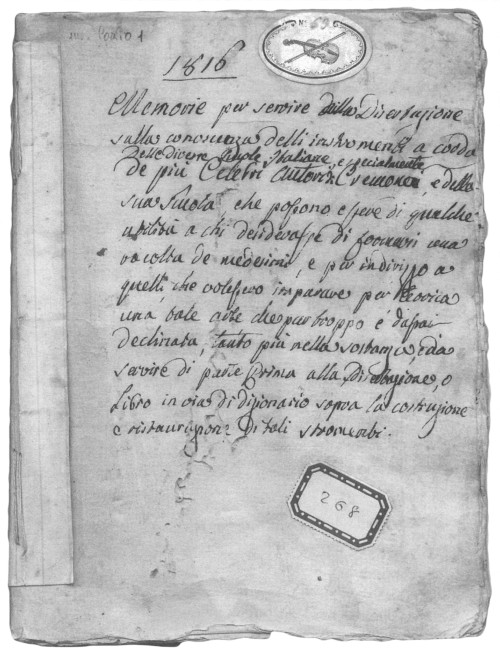 ms. Cozio 1
N.° 59.
1816
Memorie per servire dalla Disertazione
sulla conoscenza delli instromenti a corda
delle diverse scuole Italiane, e specialmente
de più Celebri Autori Cremonesi, e della
sua Scuola, che possono essere di qualche
utilità a chi desiderasse di formarsi una
racolta de medesimi, e per indirizzo a
quelli che volessero imparare per teorica
una tale arte che purtroppo è d'assai
declinata, tanto più nella sostanza, e da
servire di parte prima alla Disertazione, o
Libro in via di dizionario sopra la costruzione
e ristaurazione di tali stromenti.
268